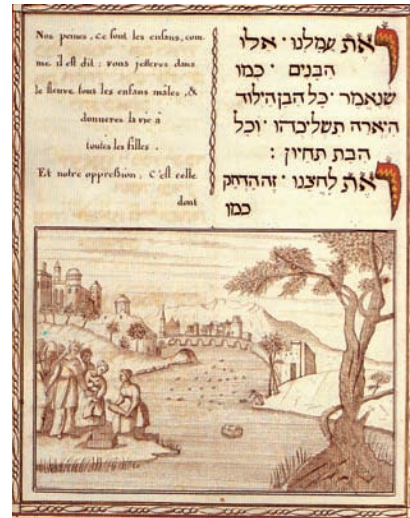 Nos peines, ce sont les enfans, com
me il est dit : vous jetteres dans
le fleuve tous les enfans mâles, &
donneres la vie à
toutes les filles .
Et notre oppression, C'est celle
dont
ואת עמלנו · אלו
הבנים · כמו
שנאמר · כל הבן הילוד
היארה תשליכהו · וכל
הבת תחיון :
ואת לחצנו · זה הדחק
כמו